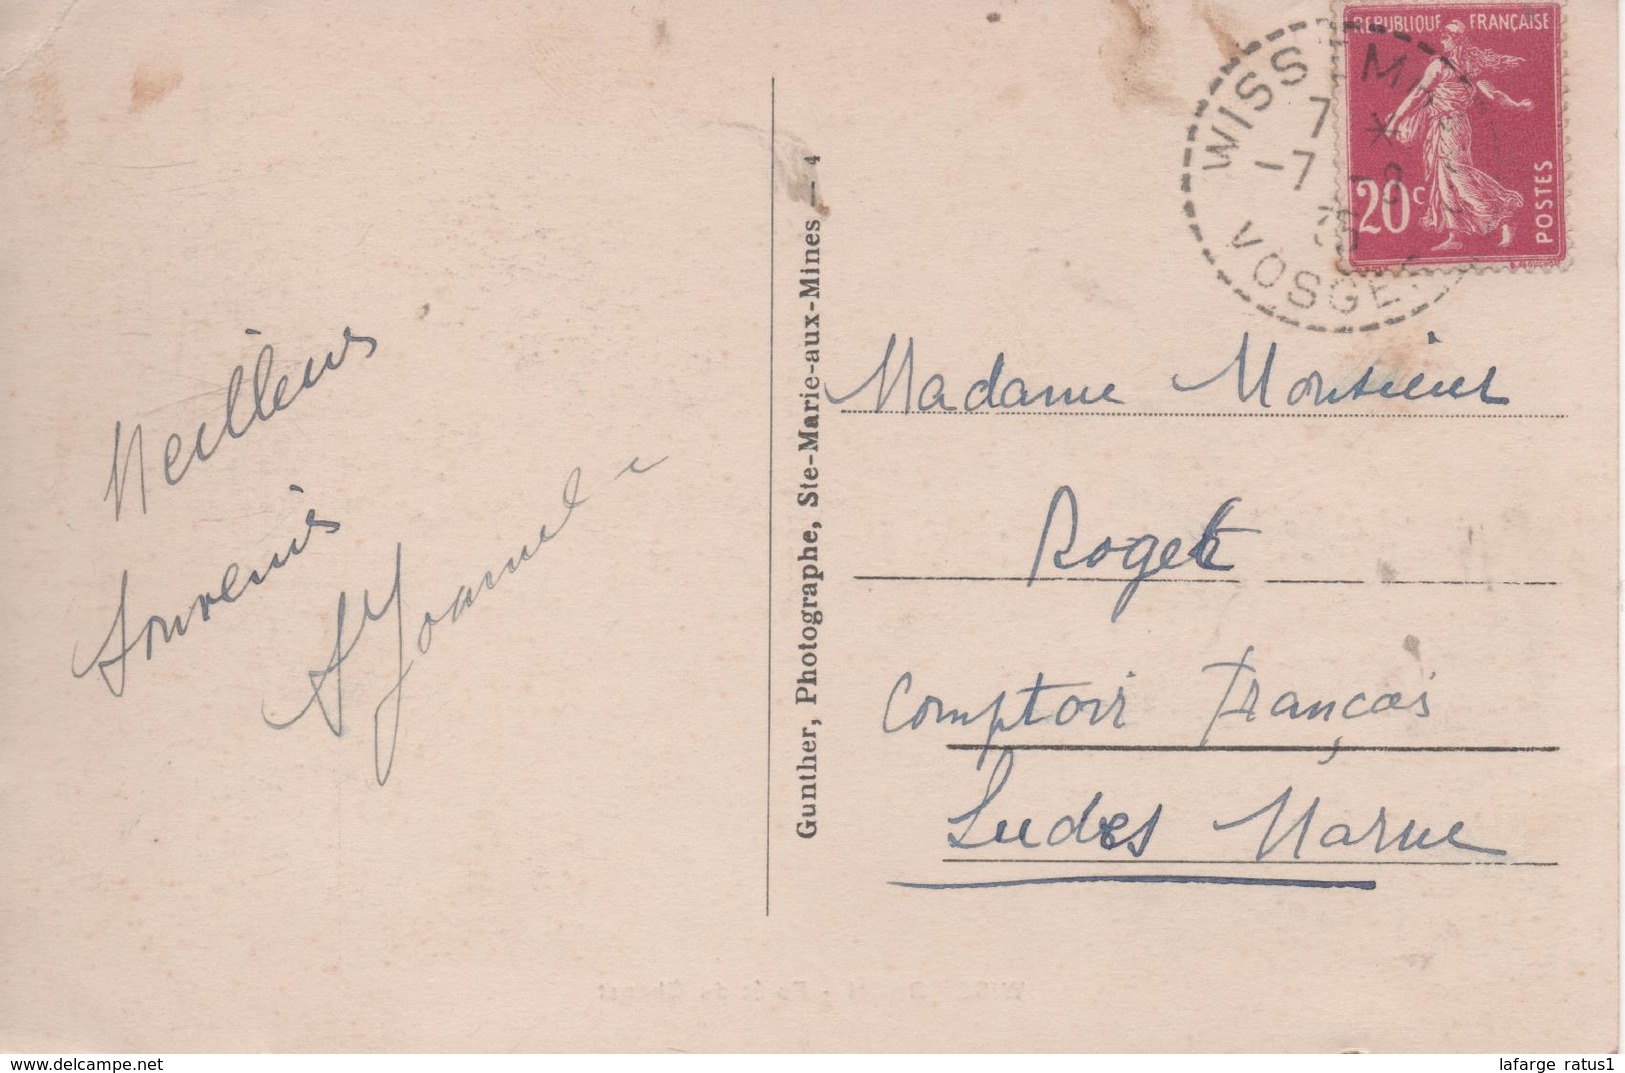 Meilleurs
souvenirs
Gunther, Photographe, Ste-Marie-aux-Mines — 4
REPUBLIQUE FRANÇAISE
20c
POSTES
WISS
7 *
-7 -8
35
VOSGES
Madame Monsieur
Roget
Comptoir Français
Ludes Marne
lafarge ratus1